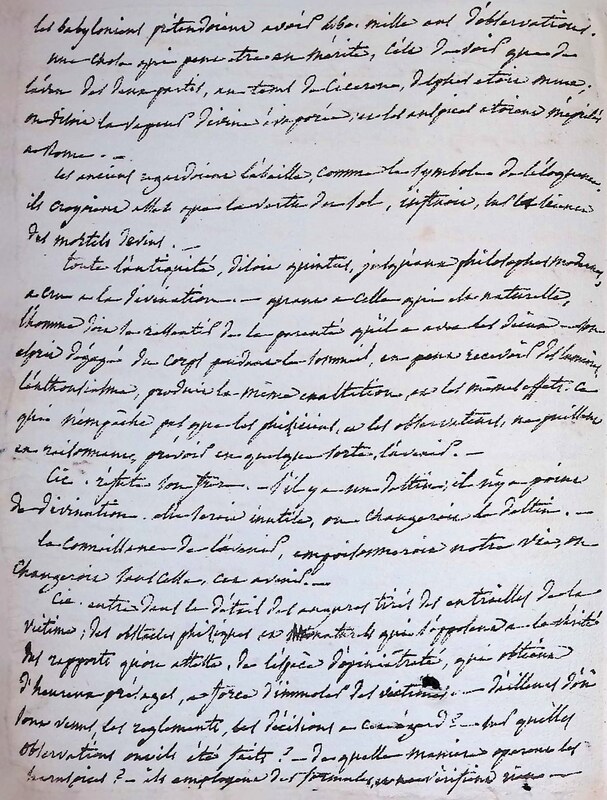 les babyloniens prétendoient avoir 480. mille ans d'observations.
une chose qui peut etre en mérite, c'est de voir que de
l'aveu des deux partis, au tems de Ciceron, delphes etoit muet,
on disoit la vapeur divine évaporée; et les auspices etoient négligés
a Rome. —
les anciens regardoient l'abeille, comme le symbole de l'éloquence,
ils croyoient aussi que la vertu du sol, influoit, sur la science
des mortels devins. —
toute l'antiquité, disoit quintus, jusqu'aux philosophes modernes,
a cru a la divination. — quant a celle qui est naturelle,
l'homme doit se ressentir de la parenté qu'il a avec les dieux — son
esprit dégagé du corps pendant le sommeil, en peut recevoir des lumières
l'enthousiasme, produit la même exaltation, et les mêmes effets. Ce
qui n'empêche pas que les phisiciens, et les observateurs, ne puissent
en raisonnant, prévoir en quelque sorte, l'avenir. —
Cic. réfute son frere. — s'il y a un destin, il n'y a point
de divination. elle seroit inutile, ou changeroit le destin. —
la connoissance de l'avenir, empoisonneroit notre vie, ou
changeroit sans cesse, cet avenir. —
Cic. entre dans le détail des augures tirés des entrailles de la
victime, des obstacles phisiques et naturels qui s'opposent a la vérité
des rapports qu'on atteste, de l'espèce d'opiniâtreté, qui obtient
d'heureux présages, a force d'immoler des victimes. — d'ailleurs d'où
sont venus, les reglements, les décisions a cet egard? — sur quelles
observations ont ils été faits? — de quelle maniere operent les
haruspices? — ils employent des formules, et ne vérifient rien —